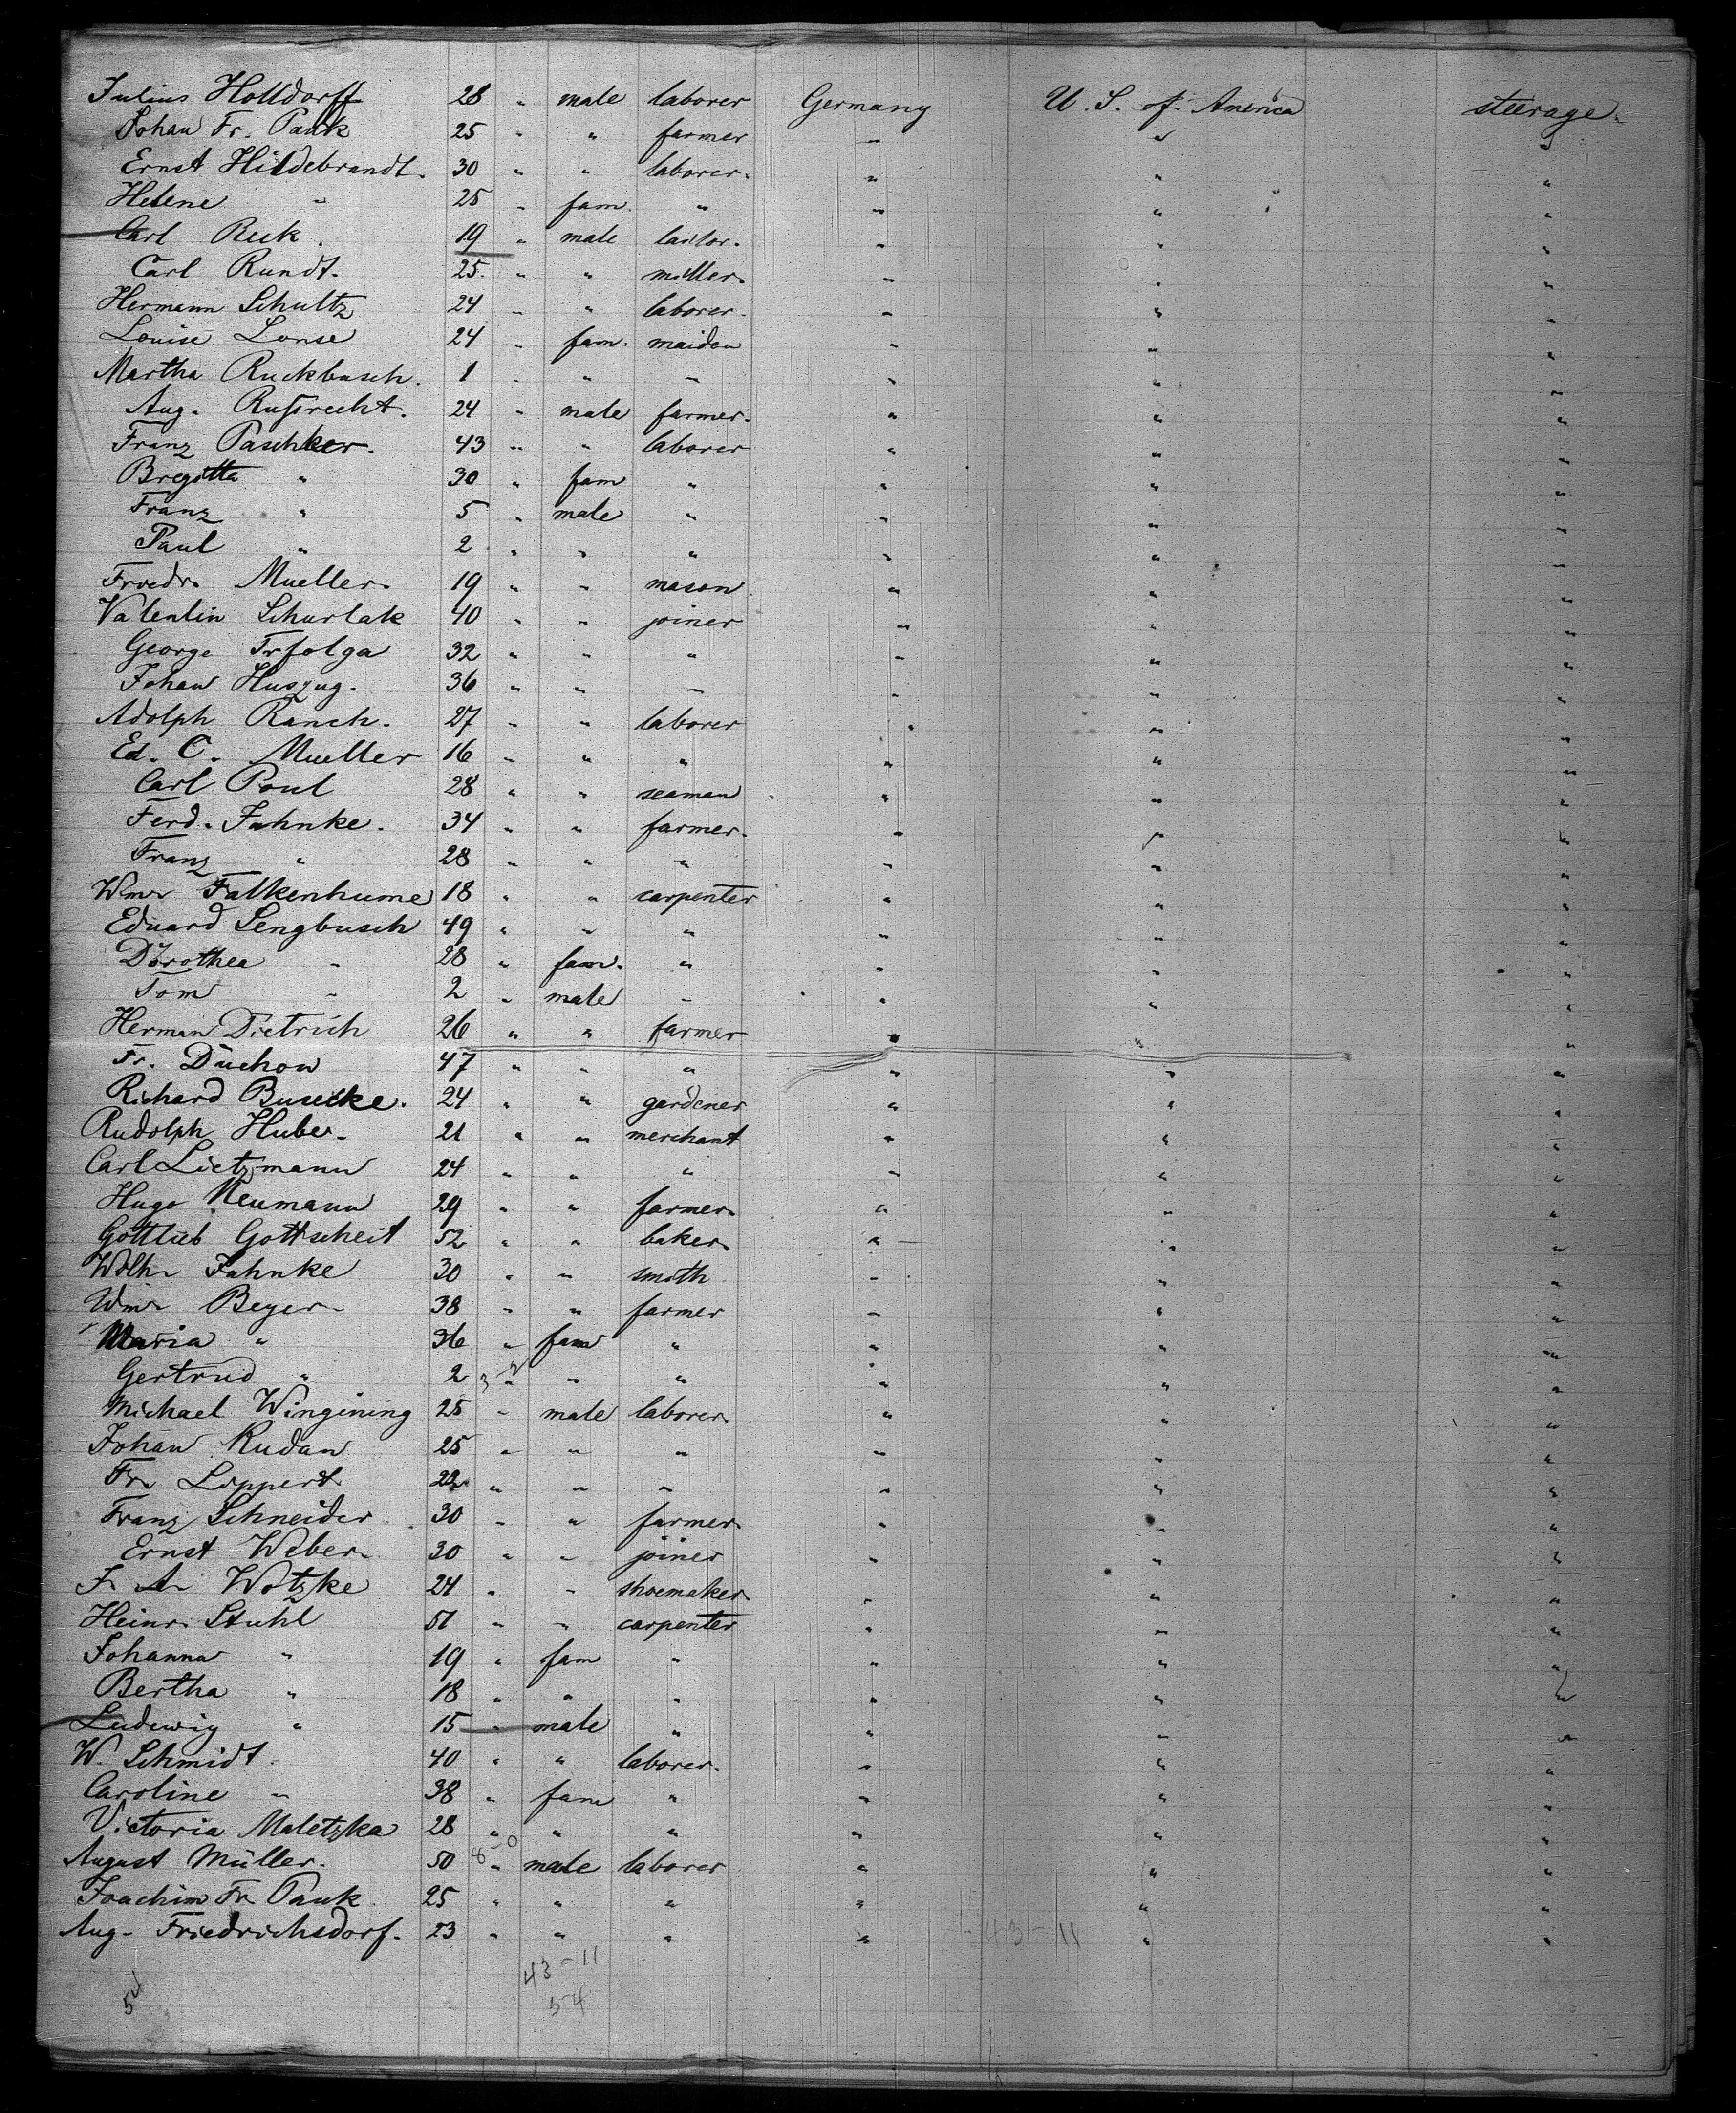 Julius Holldorff 28 " male laborer Germany U. S. of America steerage.
Johan Fr. Pauk 25 " " farmer " " "
Ernst Hildebrandt. 30 " " laborer. " " "
Helene " 25 " fam. " " " "
Carl Reek. 19 " male tailor. " " "
Carl Rundt. 25. " " miller. " " "
Hermann Schultz 24 " " laborer. " " "
Louise Lonse 24 " fam. maiden " " "
Martha Ruckbusch. 1 " " " " " "
Aug. Ruprecht. 24 " male farmer. " " "
Franz Paschker. 43 " " laborer " " "
Bregitta " 30 " fam " " " "
Franz " 5 " male " " " "
Paul " 2 " " " " " "
Friedr. Mueller. 19 " " mason " " "
Valentin Schurlak 40 " " joiner " " "
George Trfolga 32 " " " " " "
Johan Huszug. 36 " " " " " "
Adolph Ranch. 27 " " laborer " " "
Ed. C. Mueller 16 " " " " " "
Carl Poul 28 " " seaman " " "
Ferd. Jahnke. 34 " " farmer. " " "
Franz " 28 " " " " " "
Wm. Falkenhume 18 " " carpenter " " "
Eduard Sengbusch 49 " " " " " "
Dorothea " 28 " fam. " " " "
Tom " 2 " male " " " "
Herman Dietrich 26 " " farmer " " "
Fr. Duchow 47 " " " " " "
Richard Busecke. 24 " " gardener " " "
Rudolph Huber. 21 " " merchant " " "
Carl Lietzmann 24 " " " " " "
Hugo Neumann 29 " " farmer. " " "
Gottlieb Gottscheit 52 " " baker. " " "
Wilh. Jahnke 30 " " smith " " "
Wm. Beyer. 38 " " farmer " " "
Maria " 36 " fam " " " "
Gertrud " 2 " " " " " "
Michael Wingining 25 " male laborer. " " "
Johan Rudan 25 " " " " " "
Fr. Lippert 22 " " " " " "
Franz Schneider 30 " " farmer. " " "
Ernst Weber. 30 " " joiner " " "
F. A. Wotzke 24 " " shoemaker. " " "
Heinr. Stuhl 51 " " carpenter " " "
Johanna " 19 " fam " " " "
Bertha " 18 " " " " " "
Ludewig " 15 " male " " " "
W. Schmidt. 40 " " laborer. " " "
Caroline " 38 " fam " " " "
Victoria Maletzka 28 " " " " " "
August Müller. 50 " male laborer " " "
Joachim Fr. Pauk 25 " " " " " "
Aug. Friedrichsdorf. 23 " " " " " "
43-11
43-11
54
54